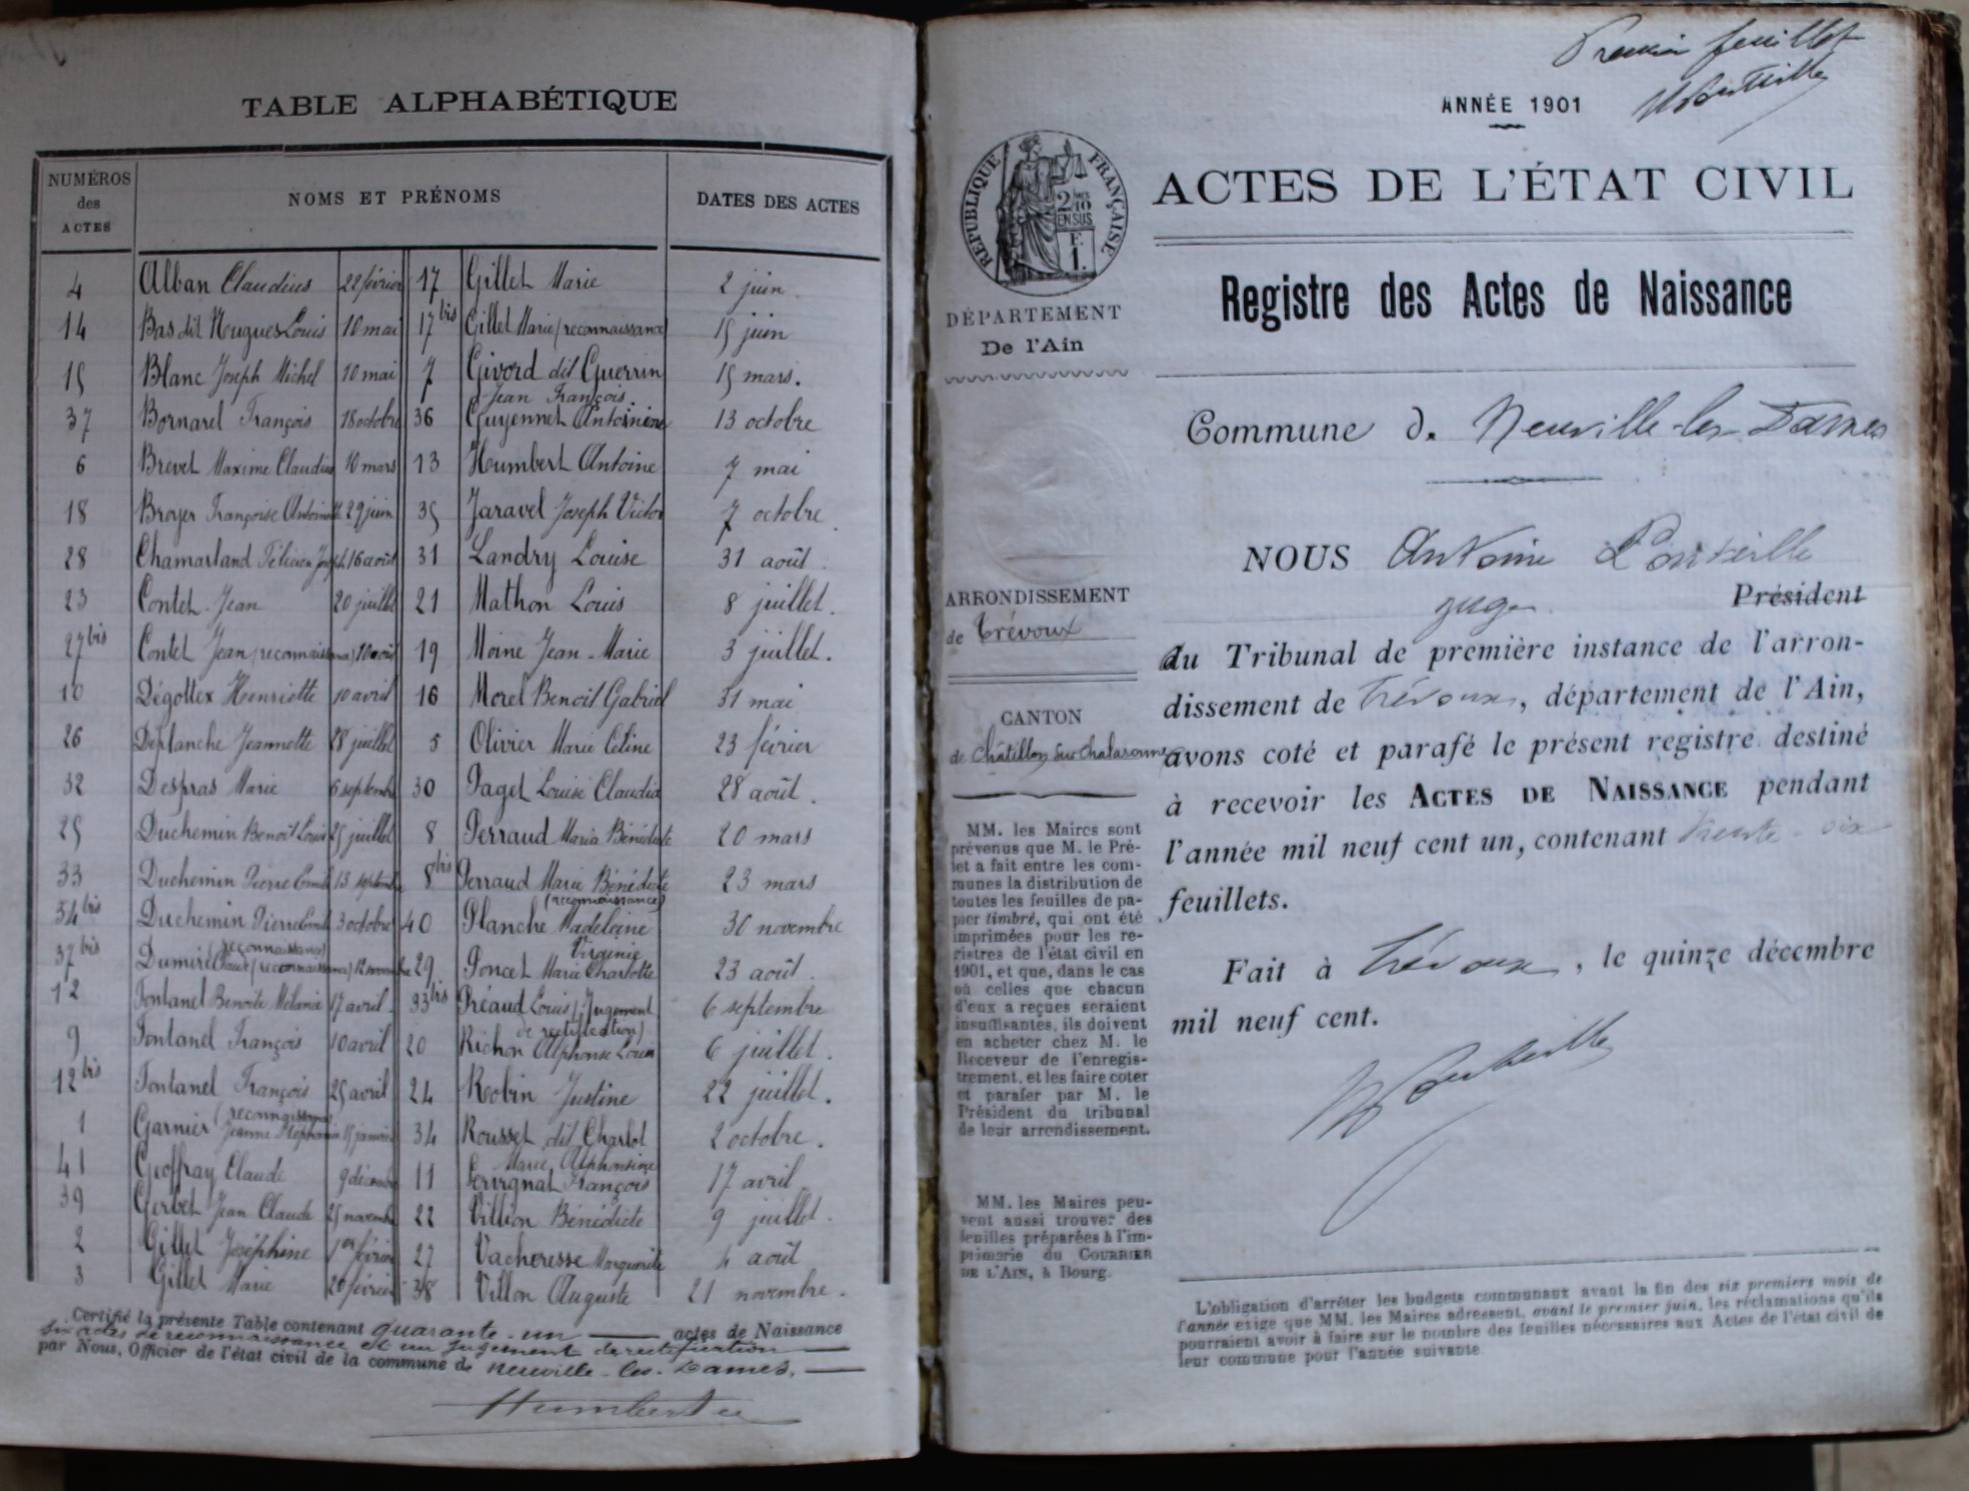 TABLE ALPHABÉTIQUE
NUMÉROS des ACTES
NOMS ET PRÉNOMS
DATES DES ACTES
4 Alban Claudius 22 février 17 Gillet Marie 2 juin
14 Bas dit Hugues Louis 10 mai 17 bis Gillet Marie (reconnaissance) 15 juin
15 Blanc Joseph Michel 10 mai 7 Givord dit Guerrin 15 mars.
Jean François
37 Bornarel François 18 octobre 36 Guyennet Antoinine 13 octobre
6 Brevet Maxime Claudius 10 mars 13 Humbert Antoine 7 mai
18 Broyer Françoise 29 juin 35 Jaravel Joseph Victor 7 octobre
28 Chamarland Félicien Joseph 16 août 31 Landry Louise 31 août
23 Contet Jean 20 juillet 21 Mathon Louis 8 juillet.
27 bis Contet Jean (reconnaissance) 10 août 19 Moine Jean-Marie 3 juillet.
10 Dégottex Henriette 10 avril 16 Morel Benoît Gabriel 31 mai
26 Deplanche Jeannette 28 juillet 5 Olivier Marie Céline 23 février
32 Despras Marie 6 septembre 30 Paget Louise Claudia 28 août.
25 Duchemin Benoît Louis 25 juillet 8 Perraud Maria Bénédicte 20 mars
33 Duchemin Pierre 13 septembre 8 bis Perraud Marie Bénédicte 23 mars
(reconnaissance)
34 bis Duchemin Pierre 3 octobre 40 Planche Madeleine 30 novembre
(reconnaissance) Virginie
37 bis Dumiré Claude (reconnaissance) 12 novembre 29 Poncet Marie Charlotte 23 août.
12 Fontanel Benoîte Mélanie 17 avril 33 bis Préaud Louis (Jugement 6 septembre
de rectification)
9 Fontanel François 10 avril 20 Richon Alphonse Louis 6 juillet.
12 bis Fontanel François 25 avril 24 Robin Justine 22 juillet.
(reconnaissance)
1 Garnier Jeanne Stéphanie 15 janvier 34 Rousset dit Charlot 2 octobre.
Marie Alphonsine
41 Geoffray Claude 9 décembre 11 Servignat François 17 avril
39 Gerbet Jean Claude 25 novembre 22 Villion Bénédicte 9 juillet.
2 Gillet Joséphine 1er février 27 Vacheresse Marguerite 4 août
3 Gillet Marie 20 février 38 Villon Auguste 21 novembre.
Certifié la présente Table contenant quarante-un actes de Naissance
six actes de reconnaissance et un jugement de rectification
par Nous, Officier de l'état civil de la commune de Neuville-les-Dames.
Humbert
Premier feuillet
ANNÉE 1901
RÉPUBLIQUE FRANÇAISE
2/10
EN SUS
F.
1.
ACTES DE L'ÉTAT CIVIL
Registre des Actes de Naissance
DÉPARTEMENT
De l'Ain
Commune de Neuville-les-Dames
NOUS Antoine Ponteille
juge Président
ARRONDISSEMENT
de Trévoux
du Tribunal de première instance de l'arron-
dissement de Trévoux, département de l'Ain,
CANTON
de Châtillon sur Chalaronne
avons coté et parafé le présent registre destiné
à recevoir les ACTES DE NAISSANCE pendant
l'année mil neuf cent un, contenant trente-six
feuillets.
Fait à Trévoux, le quinze décembre
mil neuf cent.
MM. les Maires sont
prévenus que M. le Pré-
fet a fait entre les com-
munes la distribution de
toutes les feuilles de pa-
pier timbré, qui ont été
imprimées pour les re-
gistres de l'état civil en
1901, et que, dans le cas
où celles que chacun
d'eux a reçues seraient
insuffisantes, ils doivent
en acheter chez M. le
Receveur de l'enregis-
trement, et les faire coter
et parafer par M. le
Président du tribunal
de leur arrondissement.
MM. les Maires peu-
vent aussi trouver des
feuilles préparées à l'im-
primerie du COURRIER
DE L'AIN, à Bourg.
L'obligation d'arrêter les budgets communaux avant la fin des six premiers mois de
l'année exige que MM. les Maires adressent, avant le premier juin, les réclamations qu'ils
pourraient avoir à faire sur le nombre des feuilles nécessaires aux Actes de l'état civil de
leur commune pour l'année suivante